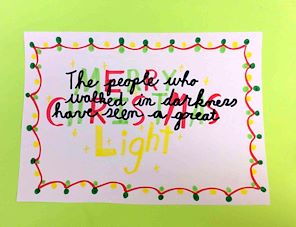 MERRY
The people who
CHRISTMAS
walked in darkness
have seen a great
Light